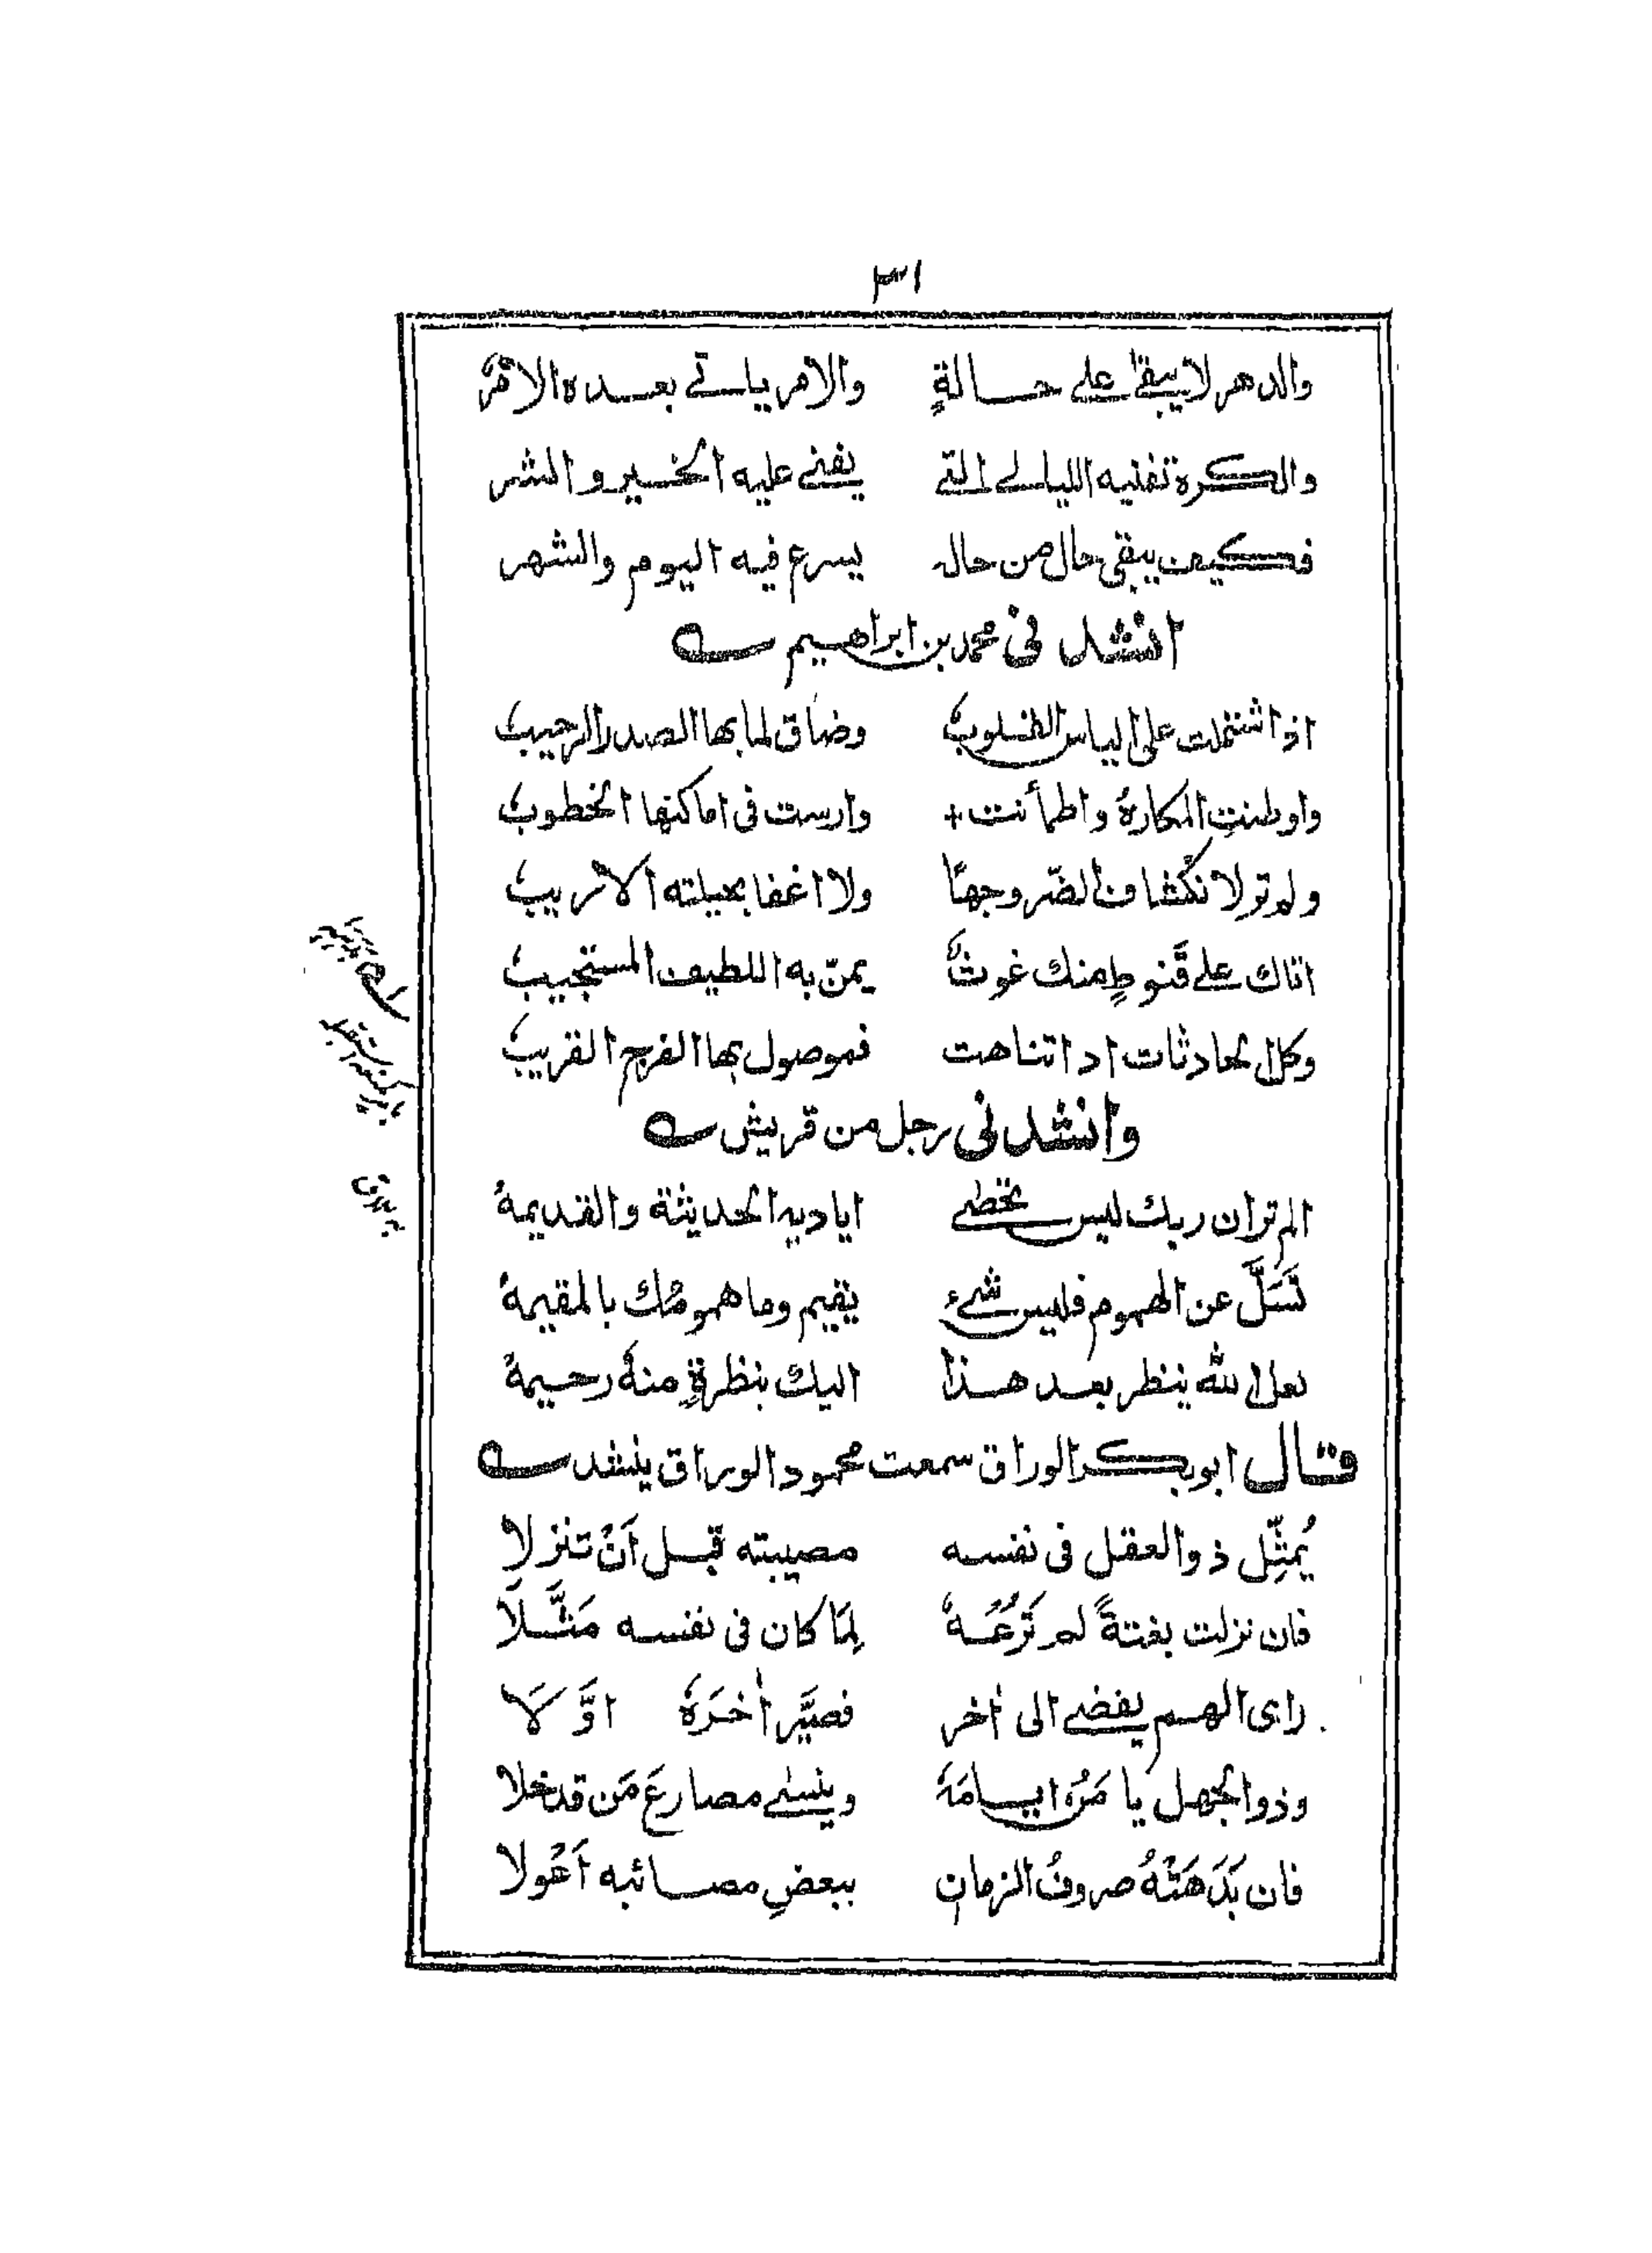 ٣١
والدهر لا يبقى على حالةٍ والامر ياتى بعده الامرُ
والكره تفنيه الليالى التى يفنى عليه الخير والشر
فكيف يبقى حال من حاله يسرع فيه اليوم والشهر
انشدنى محمد بن ابراهيم
اذا اشتملت على الياس القلوبُ وضاق لما بها الصدر الرحيبُ
واوطنتِ المكارهُ واطمأنت وارست فى اماكنها الخطوبُ
ولم تر لانكشاف الضّر وجهًا ولا اغفا بحيلته الاريبُ
اتاك على قَنوطٍ منك غوثٌ يمنّ به اللطيف المستجيبُ
وكل الحادثات اذا تناهت فموصول بها الفرج القريبُ
وانشدنى رجل من قريش
الم تر ان ربك ليس تخطى اياديه الحديثة والقديمهُ
تَسَلَّ عن الهموم فليس شىء يقيم وما همومُك بالمقيمهُ
لعل الله ينظر بعد هذا اليك بنظرةٍ منهُ رحيمهُ
قال ابو بكر الوراق سمعت محمود الوراق ينشد
يُمثِّل ذو العقل فى نفسه مصيبته قبل اَنْ تنزلا
فان نزلت بغتةً لم تَرُعْهُ لِمَا كان فى نفسه مَثَّلَا
راى الهم يفضى الى اٰخر فصيَّر اٰخرَهُ اوَّلَا
وذو الجهل يا مَنُ ايامَهُ وينسٰى مصارعَ مَن قد خلا
فان بَدَهَتْهُ صروفُ الزمانِ ببعضِ مصائبه اَعْولا